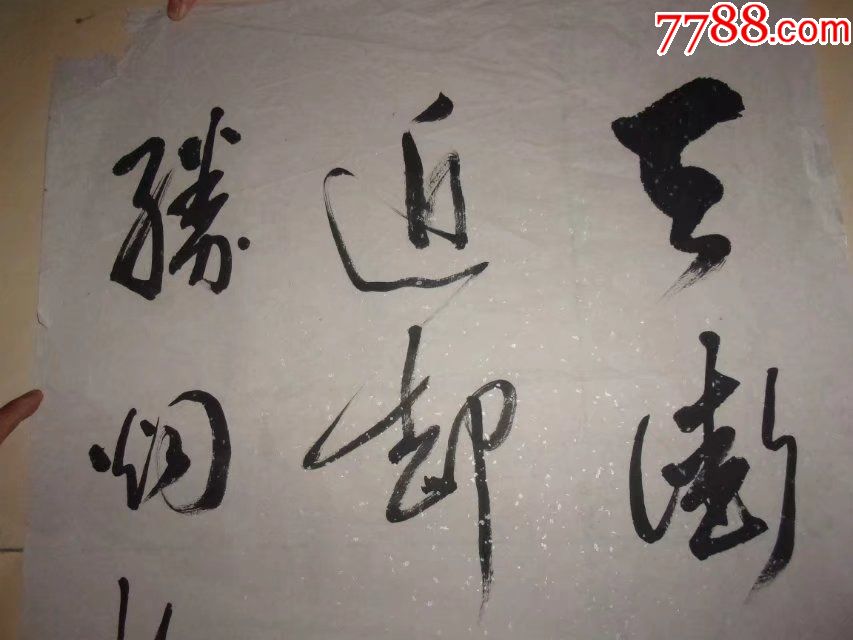 7788.com
天街
近却
勝烟